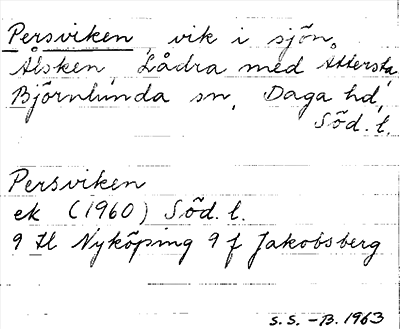 Persviken, vik i sjön
Älsken, Lådra med Åttersta,
Björnlunda sn, Daga hd,
Söd. l.
Persviken
ek (1960) Söd. l.
9 H Nyköping 9 f Jakobsberg
S.S. -B. 1963